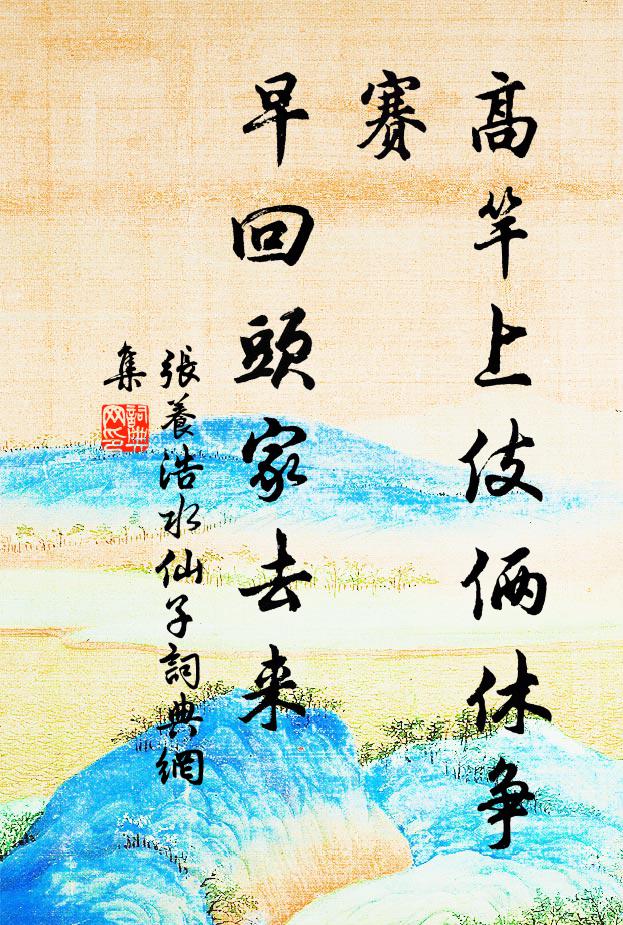 高竿上伎俩休争
赛
早回頭家去来
張養浩水仙子詞典網
集
詞典
网印